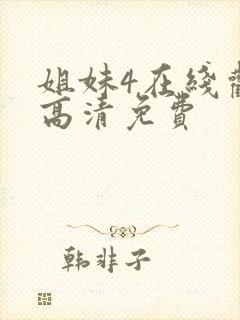 姐妹4在綫觀
高清免費
韩非子